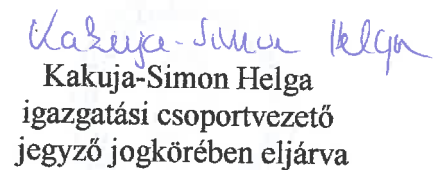 Kakuja-Simon Helga
Kakuja-Simon Helga
igazgatási csoportvezető
jegyző jogkörében eljárva